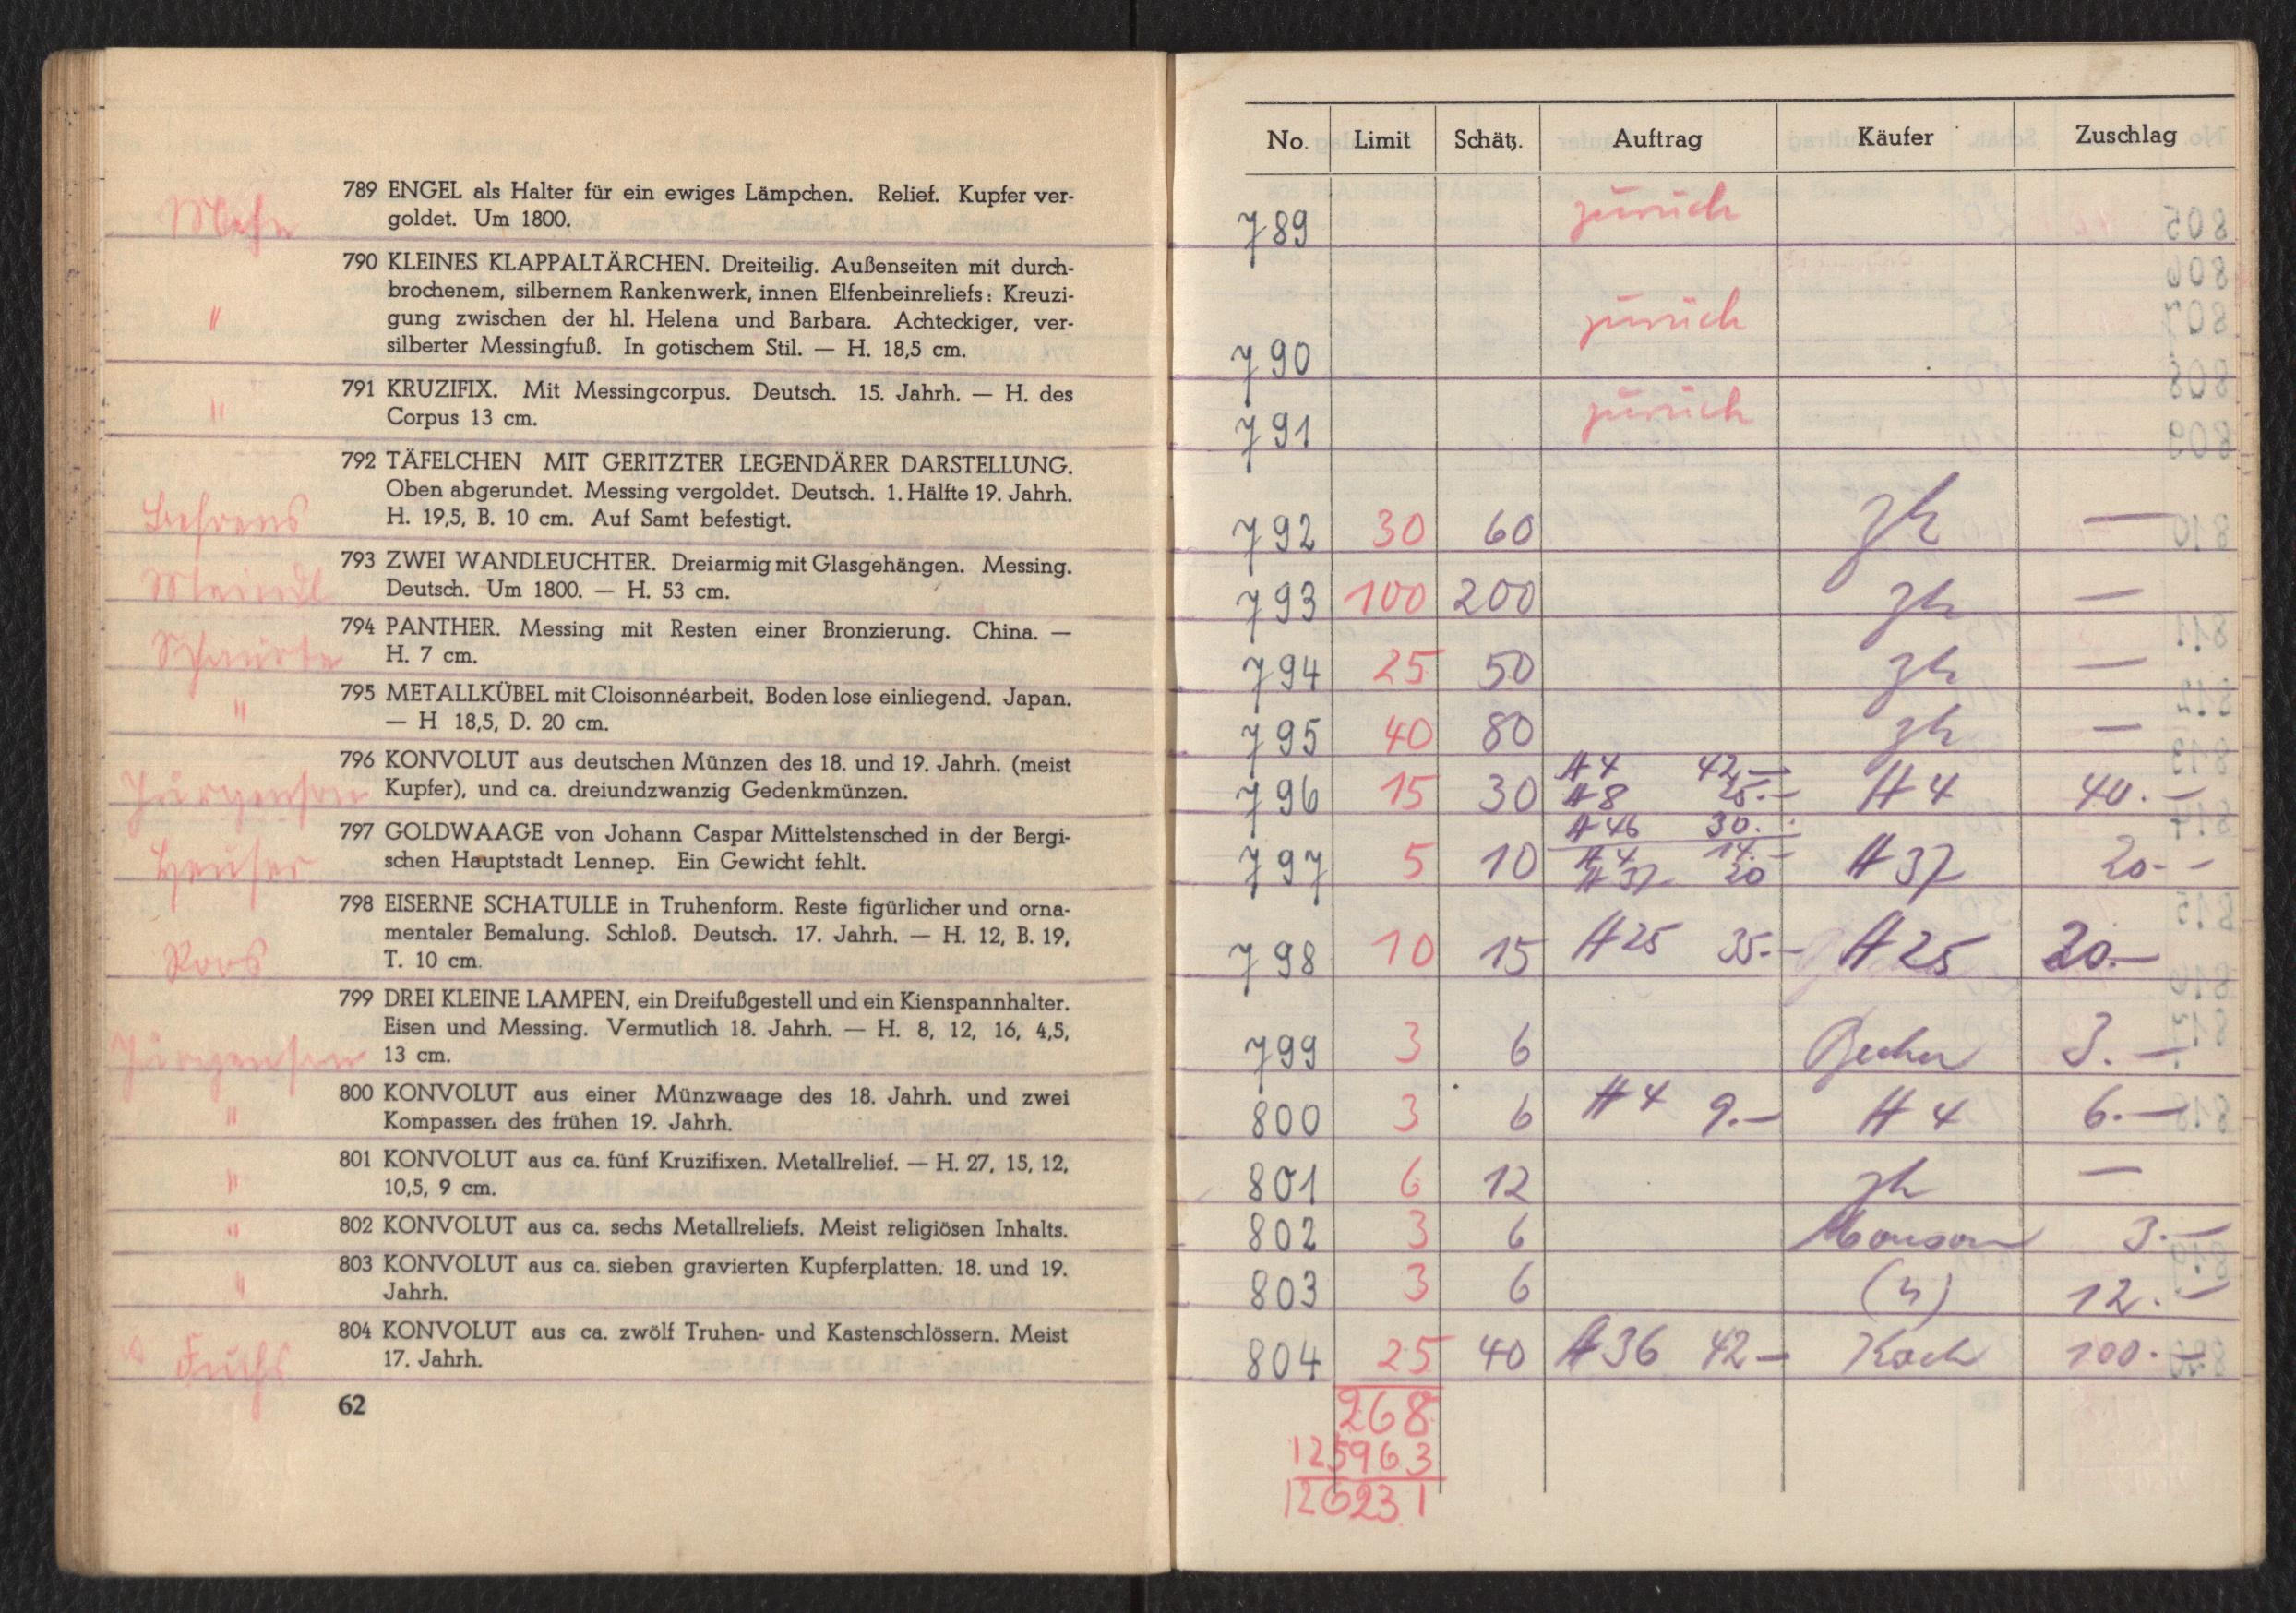 789 ENGEL als Halter für ein ewiges Lämpchen. Relief. Kupfer ver-
goldet. Um 1800.
790 KLEINES KLAPPALTÄRCHEN. Dreiteilig. Außenseiten mit durch-
brochenem, silbernem Rankenwerk, innen Elfenbeinreliefs: Kreuzi-
"
gung zwischen der hl. Helena und Barbara. Achteckiger, ver-
silberter Messingfuß. In gotischem Stil. — H. 18,5 cm.
791 KRUZIFIX. Mit Messingcorpus. Deutsch. 15. Jahrh. — H. des
" Corpus 13 cm.
792 TÄFELCHEN MIT GERITZTER LEGENDÄRER DARSTELLUNG.
Oben abgerundet. Messing vergoldet. Deutsch. 1. Hälfte 19. Jahrh.
Behrens H. 19,5, B. 10 cm. Auf Samt befestigt.
793 ZWEI WANDLEUCHTER. Dreiarmig mit Glasgehängen. Messing.
Meindl Deutsch. Um 1800. — H. 53 cm.
794 PANTHER. Messing mit Resten einer Bronzierung. China. —
H. 7 cm.
795 METALLKÜBEL mit Cloisonnéarbeit. Boden lose einliegend. Japan.
" — H 18,5, D. 20 cm.
796 KONVOLUT aus deutschen Münzen des 18. und 19. Jahrh. (meist
Jürgensen Kupfer), und ca. dreiundzwanzig Gedenkmünzen.
797 GOLDWAAGE von Johann Caspar Mittelstensched in der Bergi-
Heuser schen Hauptstadt Lennep. Ein Gewicht fehlt.
798 EISERNE SCHATULLE in Truhenform. Reste figürlicher und orna-
mentaler Bemalung. Schloß. Deutsch. 17. Jahrh. — H. 12, B. 19,
Roos T. 10 cm.
799 DREI KLEINE LAMPEN, ein Dreifußgestell und ein Kienspannhalter.
Eisen und Messing. Vermutlich 18. Jahrh. — H. 8, 12, 16, 4,5,
Jürgensen 13 cm.
800 KONVOLUT aus einer Münzwaage des 18. Jahrh. und zwei
" Kompassen des frühen 19. Jahrh.
801 KONVOLUT aus ca. fünf Kruzifixen. Metallrelief. — H. 27, 15, 12,
" 10,5, 9 cm.
" 802 KONVOLUT aus ca. sechs Metallreliefs. Meist religiösen Inhalts.
803 KONVOLUT aus ca. sieben gravierten Kupferplatten. 18. und 19.
" Jahrh.
804 KONVOLUT aus ca. zwölf Truhen- und Kastenschlössern. Meist
Fuchs 17. Jahrh.
62
No. Limit Schätz. Auftrag Käufer Zuschlag
789 zurück
790 zurück
791 zurück
792 30 60 zk —
793 100 200 zk —
794 25 50 zk —
795 40 80 zk —
# 4 42.—
796 15 30 # 8 25.— # 4 40.—
# 46 30.—
797 5 10 # 4 14.— # 37 20.-
# 37 20
798 10 15 # 25 35.— # 25 20.—
799 3 6 Becker 3.—
800 3 6 # 4 9.— # 4 6.—
801 6 12 zk —
802 3 6 3.—
803 3 6 (n) 12.—
804 25 40 # 36 42.— Koch 100.—
268
125963
126231